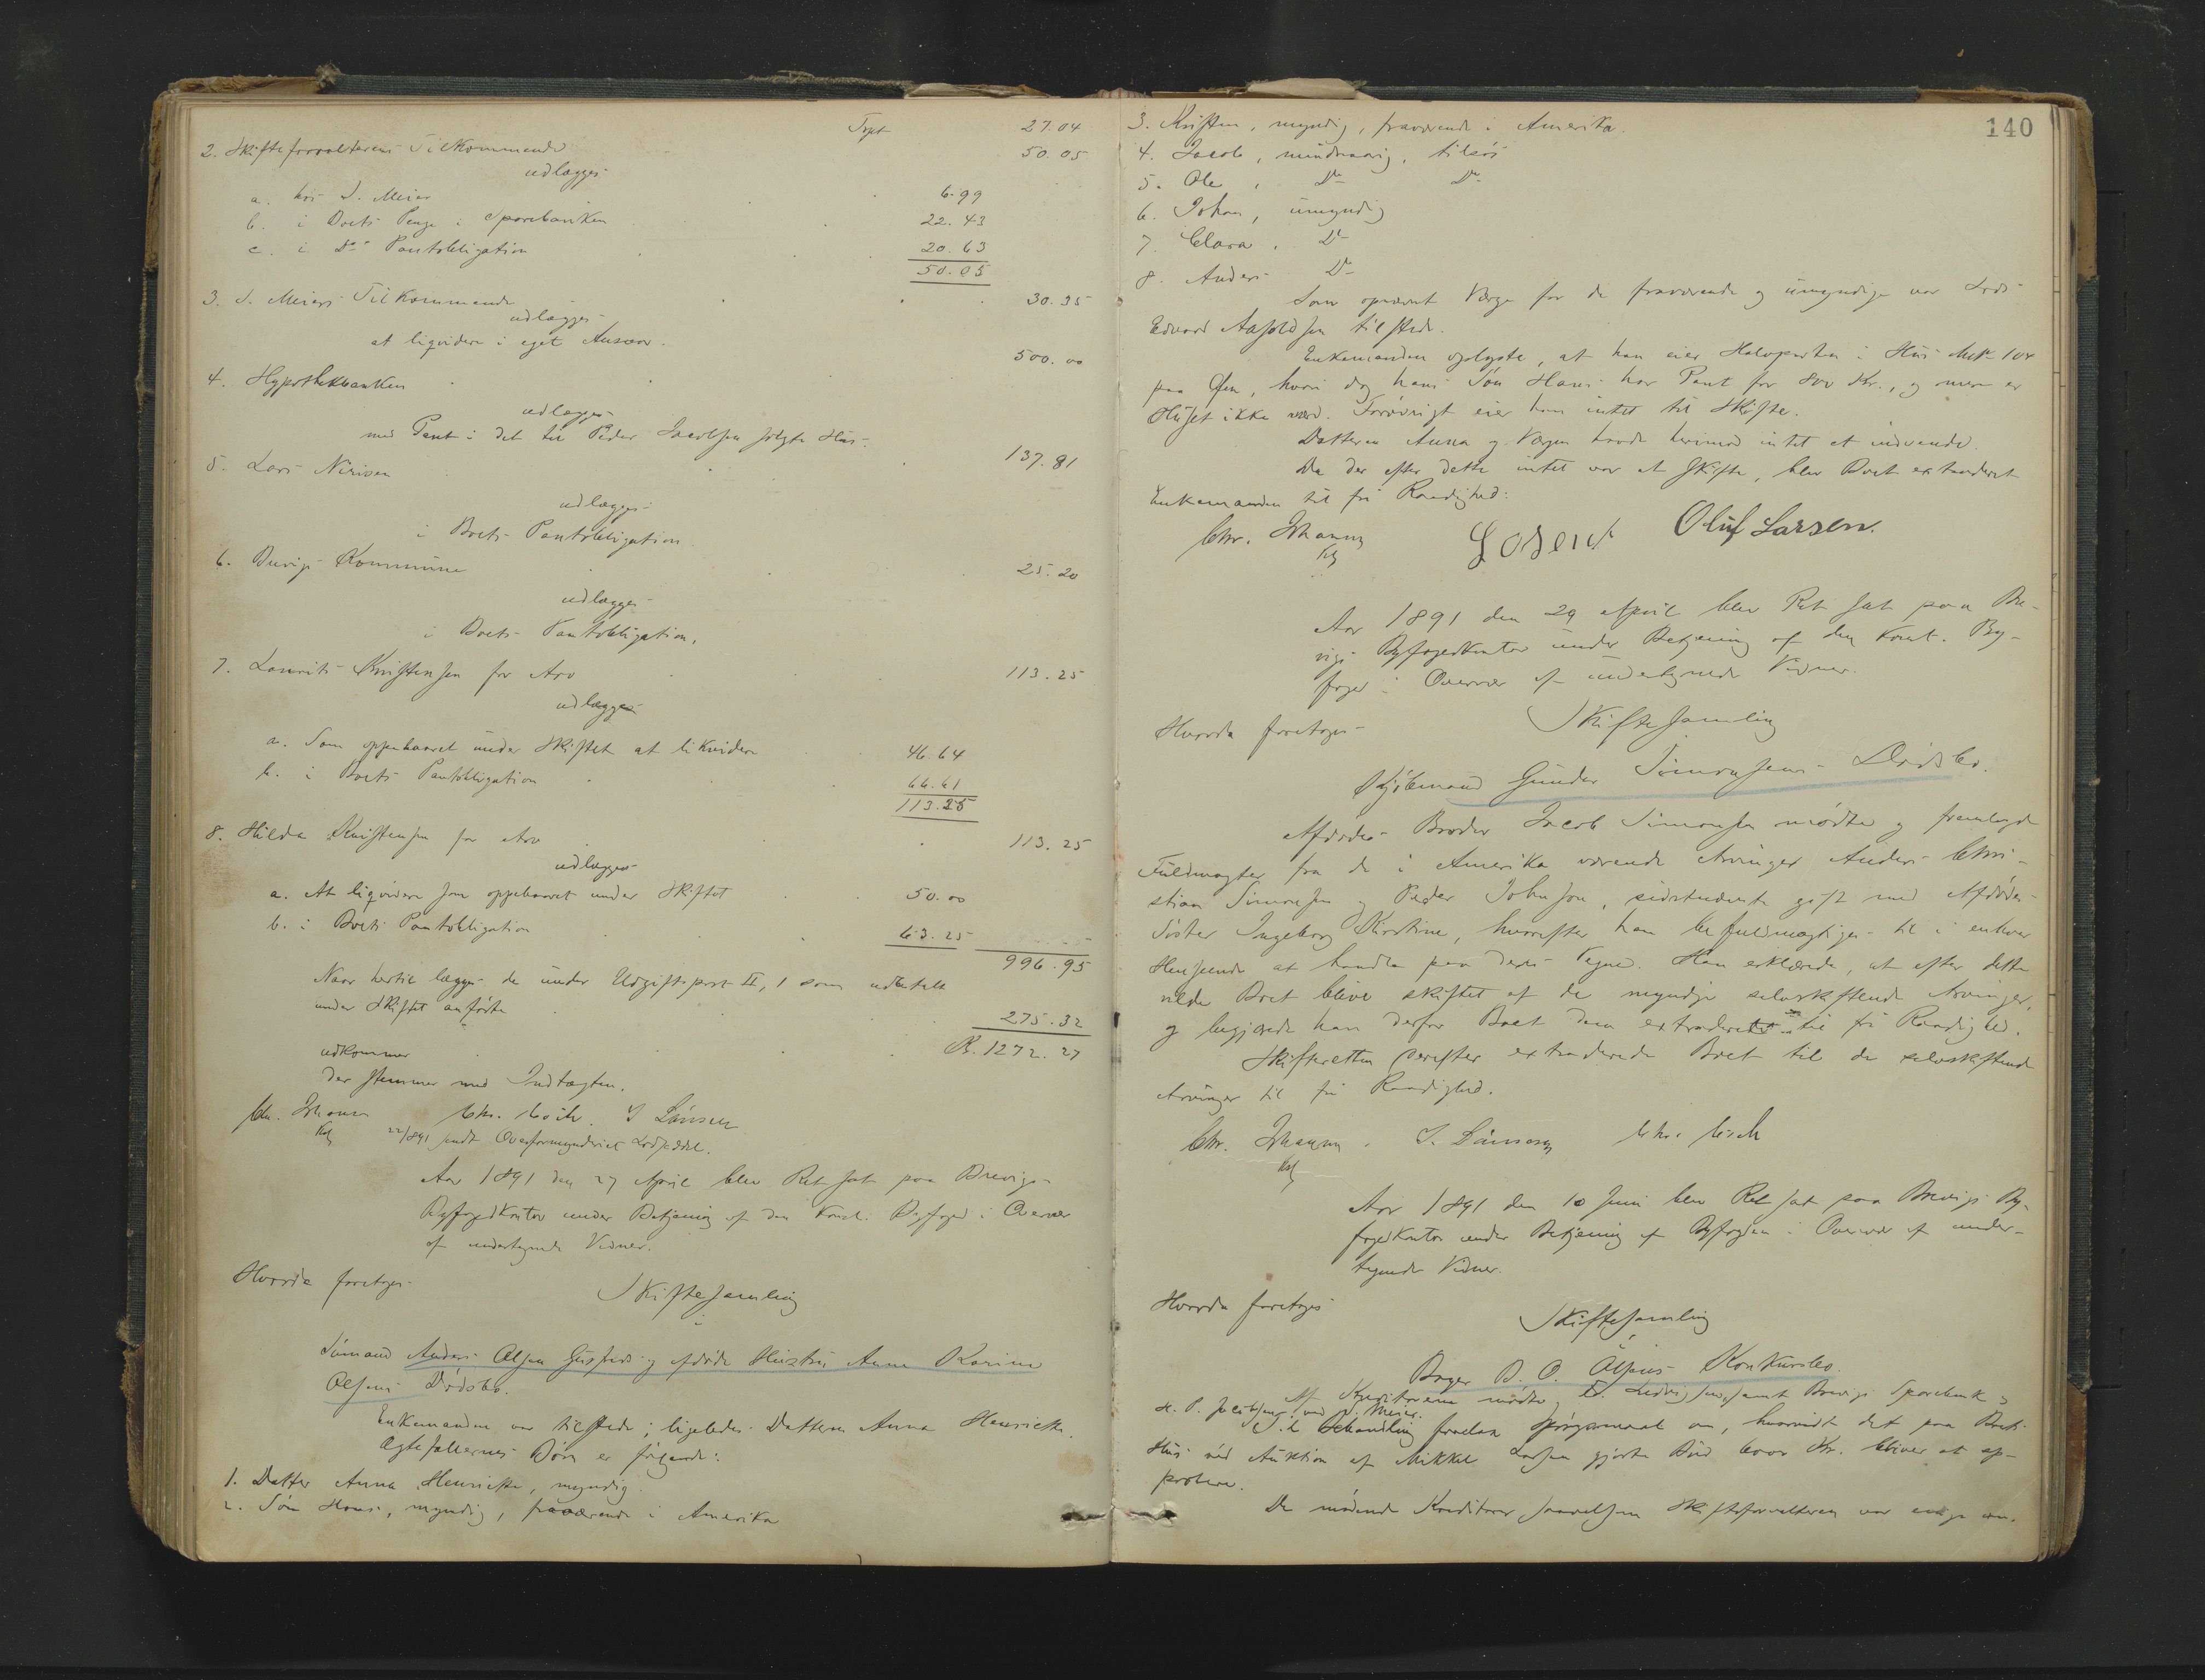 Trpt 27.04
2. Skifteforvalterens Tilkommende 50.05
udlægges
a. hos S. Meier 6.99
b. i Boets Penge i Sparebanken 22.43
c. i Do Pantobligation 20.63
50.05
3. S. Meiers Tilkommende 30.35
udlægges
at liqvidere i eget Ansvar.
4. Hypothekbanken 500.00
udlægges
med Pant i det til Peder Jacobsen solgte Hus.
5. Lars Nirisen 137.81
udlægges
i Boets Pantobligation
6. Brevigs Kommune 25.20
udlægges
i Boets Pantobligation.
7. Laurits Kristensen for Arv 113.25
udlægges
a. Som oppebaaret under Skiftet at likvidere 46.64
b. i Boets Pantobligation 66.61
113.25
8. Hilda Kristensen for Arv 113.25
udlægges
a. At liqvidere som oppebaaret under Skiftet 50.00
b. i Boets Pantobligation 63.25
996.95
Naar hertil lægges de under Udgiftspost II, 1 som udbetalt
under Skiftet anførte 275.32
udkommer Kr. 1272.27
der stemmer med Indtægten.
Chr. Johannsen Chr. S Länsen
Kst
22/8 91 sendt Overformynderiet Lodseddel.
Aar 1891 den 27 April blev Ret sat paa Brevigs
Byfogedkontor under Betjening af den Konst. Byfoged i Overvær
af undertegnede Vidner.
Hvorda foretoges
Skiftesamling
i
Sømand Anders Olsen Gusfreds og afdøde Hustru Anne Karine
Olsens Dødsbo.
Enkemanden var tilstede; ligeledes Datteren Anna Henriette.
Ægtefællernes Børn er følgende:
1. Datter Anna Henriette, myndig
2. Søn Hans, myndig, fraværende i Amerika
140
3. Kristen, myndig, fraværende i Amerika.
4. Jacob, mindreaarig, tilsøs
5. Ole, Do Do
6. Johan, umyndig
7. Clara, Do
8. Anders Do
Som opnævnt Værge for de fraværende og umyndige var Lods
Edvard Aasoldsen tilstede.
Enkemanden oplyste, at han eier Halvparten i Hus Mtr 104
paa Øen, hvori dog hans Søn Hans har Pant for 800 Kr., og mere er
Huset ikke værd. Forøvrigt eier han intet til Skifte.
Datteren Anna og Værgen havde herimod intet at indvende.
Da der efter dette intet var at skifte, blev Boet extraderet
Enkemanden til fri Raadighed:
Chr. Johannsen Oluf Larsen.
Kst
Aar 1891 den 29 April blev Ret sat paa Bre-
vigs Byfogedkontor under Betjening af den Konst. By-
foged i Overvær af undertegnede Vidner.
Hvorda foretoges
Skiftesamling
Gunder Simonsens Dødsbo.
Afdødes Broder Jacob Simonsen mødte og fremlagde
Fuldmagter fra de i Amerika værende Arvinger Anders Chri-
stian Simonsen og Peder Johnson, sidstnævnte gift med Afdødes
Søster Ingeborg Kirstine, hvorefter han befuldmægtiges til i enhver
Henseende at handle paa deres Vegne. Han erklærede, at efter dette
vilde Boet blive skiftet af de myndige selvskiftende Arvinger,
og begjærede han derfor Boet dem extraderet til fri Raadighed.
Skifteretten derefter extraderede Boet til de selvskiftende
Arvinger til fri Raadighed.
Chr. Johannsen. S. Länsen
Kst
Aar 1891 den 10 Juni blev Ret sat paa Brevigs By-
fogedkontor under Betjening af Byfogden i Overvær af under-
tegnede Vidner.
Hvorda foretoges
Skiftesamling
i
Bager B. O. Olsens Konkursbo.
Af Kreditorerne mødte Ed. Ludvigsen, samt Brevigs Sparebank og
H. P. Jacobsen ved S. Meier.
Til Behandling forelaa Spørgsmaal om, hvorvidt det paa Boets
Hus ved Auktion af Mikkel Larsen gjorte Bud 6000 Kr. bliver at ap-
probere.
De mødende Kreditorer saavelsom Skifteforvalteren var enige om.